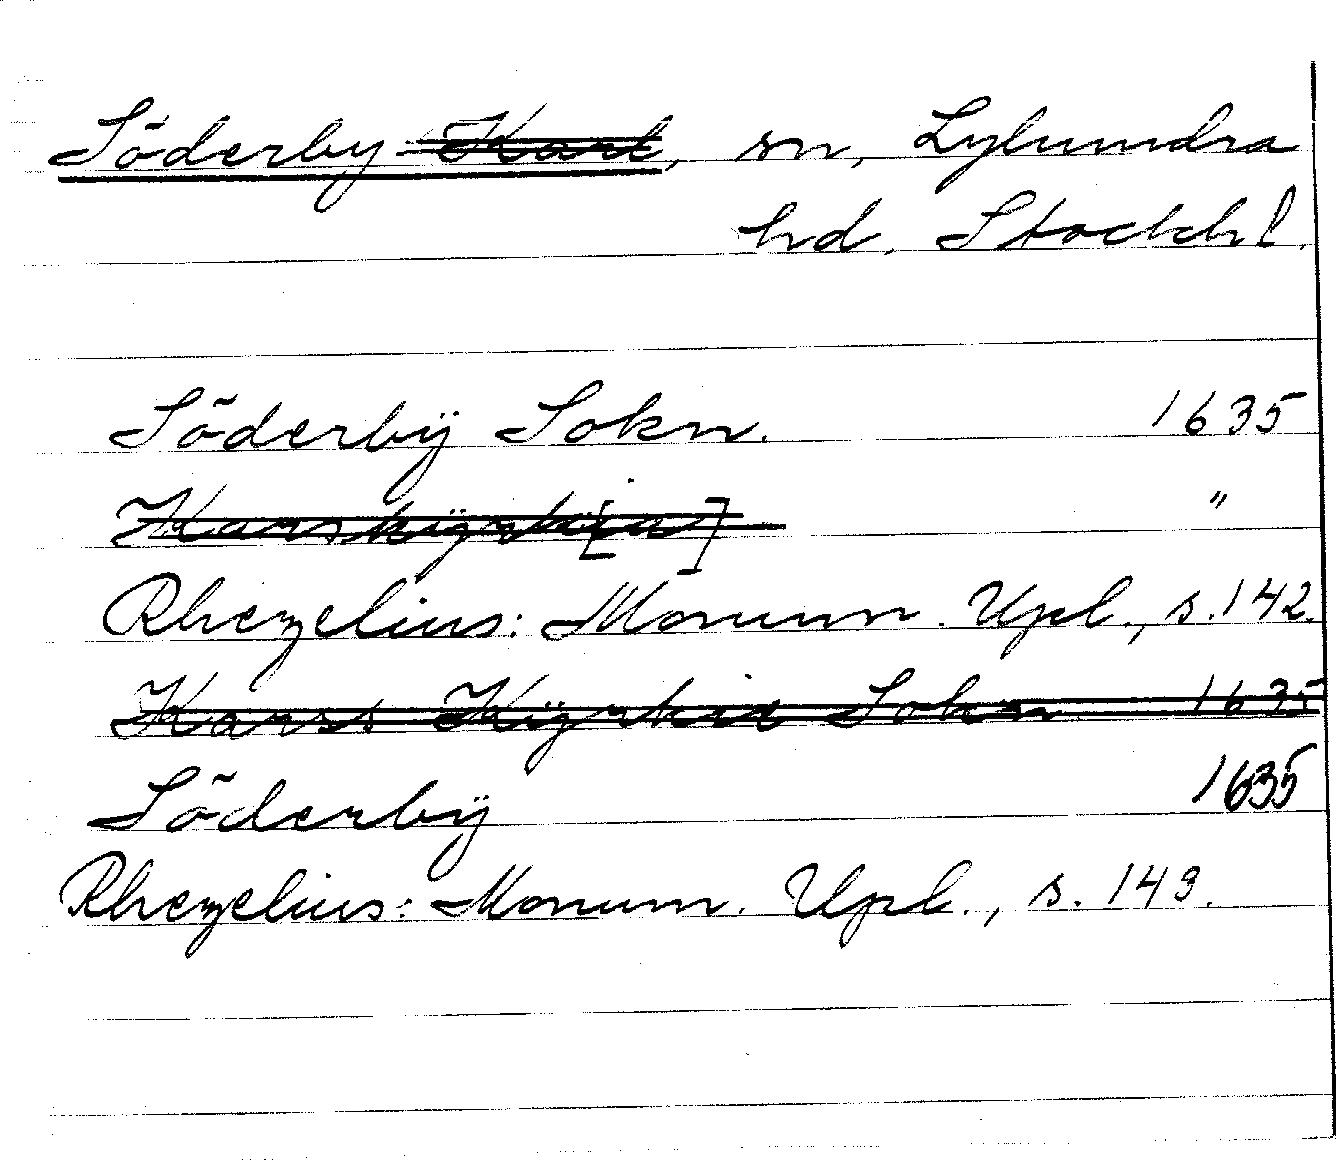 Söderby Karl, sn, Lyhundra
hd, Stockhl.
Söderbÿ Sokn. 1635
Karskÿrki[a] "
Rhezelius: Monum. Upl., s. 142.
Karss Kÿrkia Sokn 1635
Söderbÿ 1635
Rhezelius: Monum. Upl., s. 149.